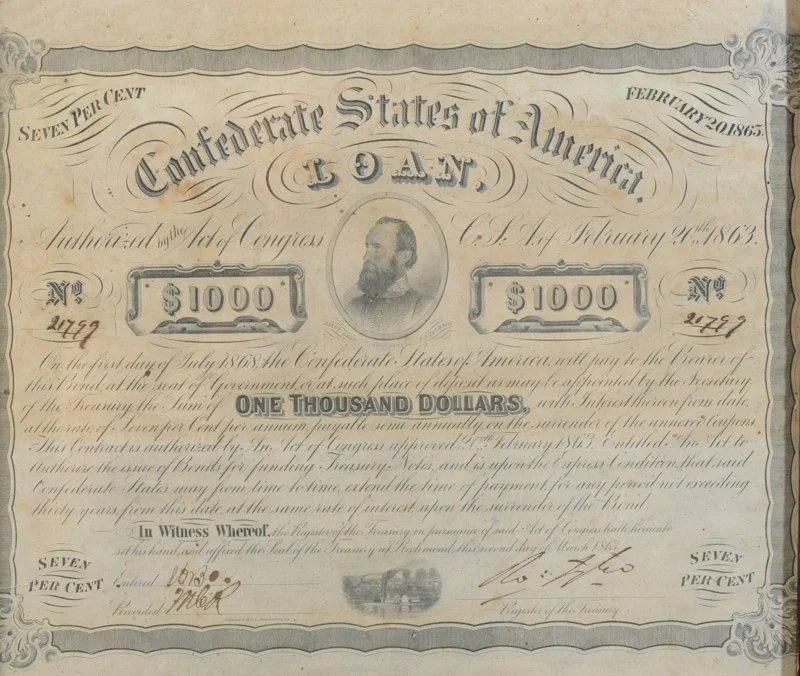 SEVEN PER CENT
FEBRUARY 20, 1863.
Confederate States of America.
LOAN,
Authorized by the Act of Congress C. S. A. of February 20th 1863.
No 21799
$1000
$1000
No 21799
On the first day of July 1868, the Confederate States of America, will pay to the Bearer of
this Bond, at the seat of Government, or at such place of deposit as may be appointed by the Secretary
of the Treasury, the Sum of ONE THOUSAND DOLLARS, with Interest thereon from date,
at the rate of Seven per Cent per annum, payable semi-annually, on the surrender of the annexed Coupons.
This Contract is authorized by An Act of Congress approved 20th February 1863, entitled "An Act to
Authorize the issue of Bonds for funding Treasury Notes, and is upon the Express Condition, that said
Confederate States, may from time to time, extend the time of payment, for any period not exceeding
thirty years from this date, at the same rate of interest, upon the surrender of the Bond.
In Witness Whereof, the Register of the Treasury, in pursuance of said Act of Congress, hath hereunto
set his hand, and affixed the Seal of the Treasury at Richmond, this second day of March 1863.
SEVEN
PER CENT
SEVEN
PER CENT
Entered
Recorded
Ro: Tyler
Register of the Treasury